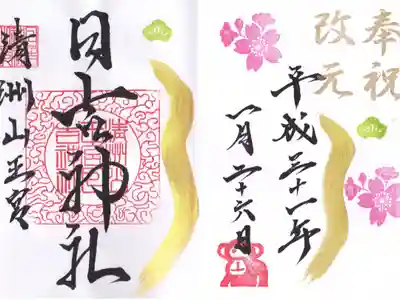 奉祝
改元
平成三十一年
一月二十六日
日吉神社
清洲山王宮